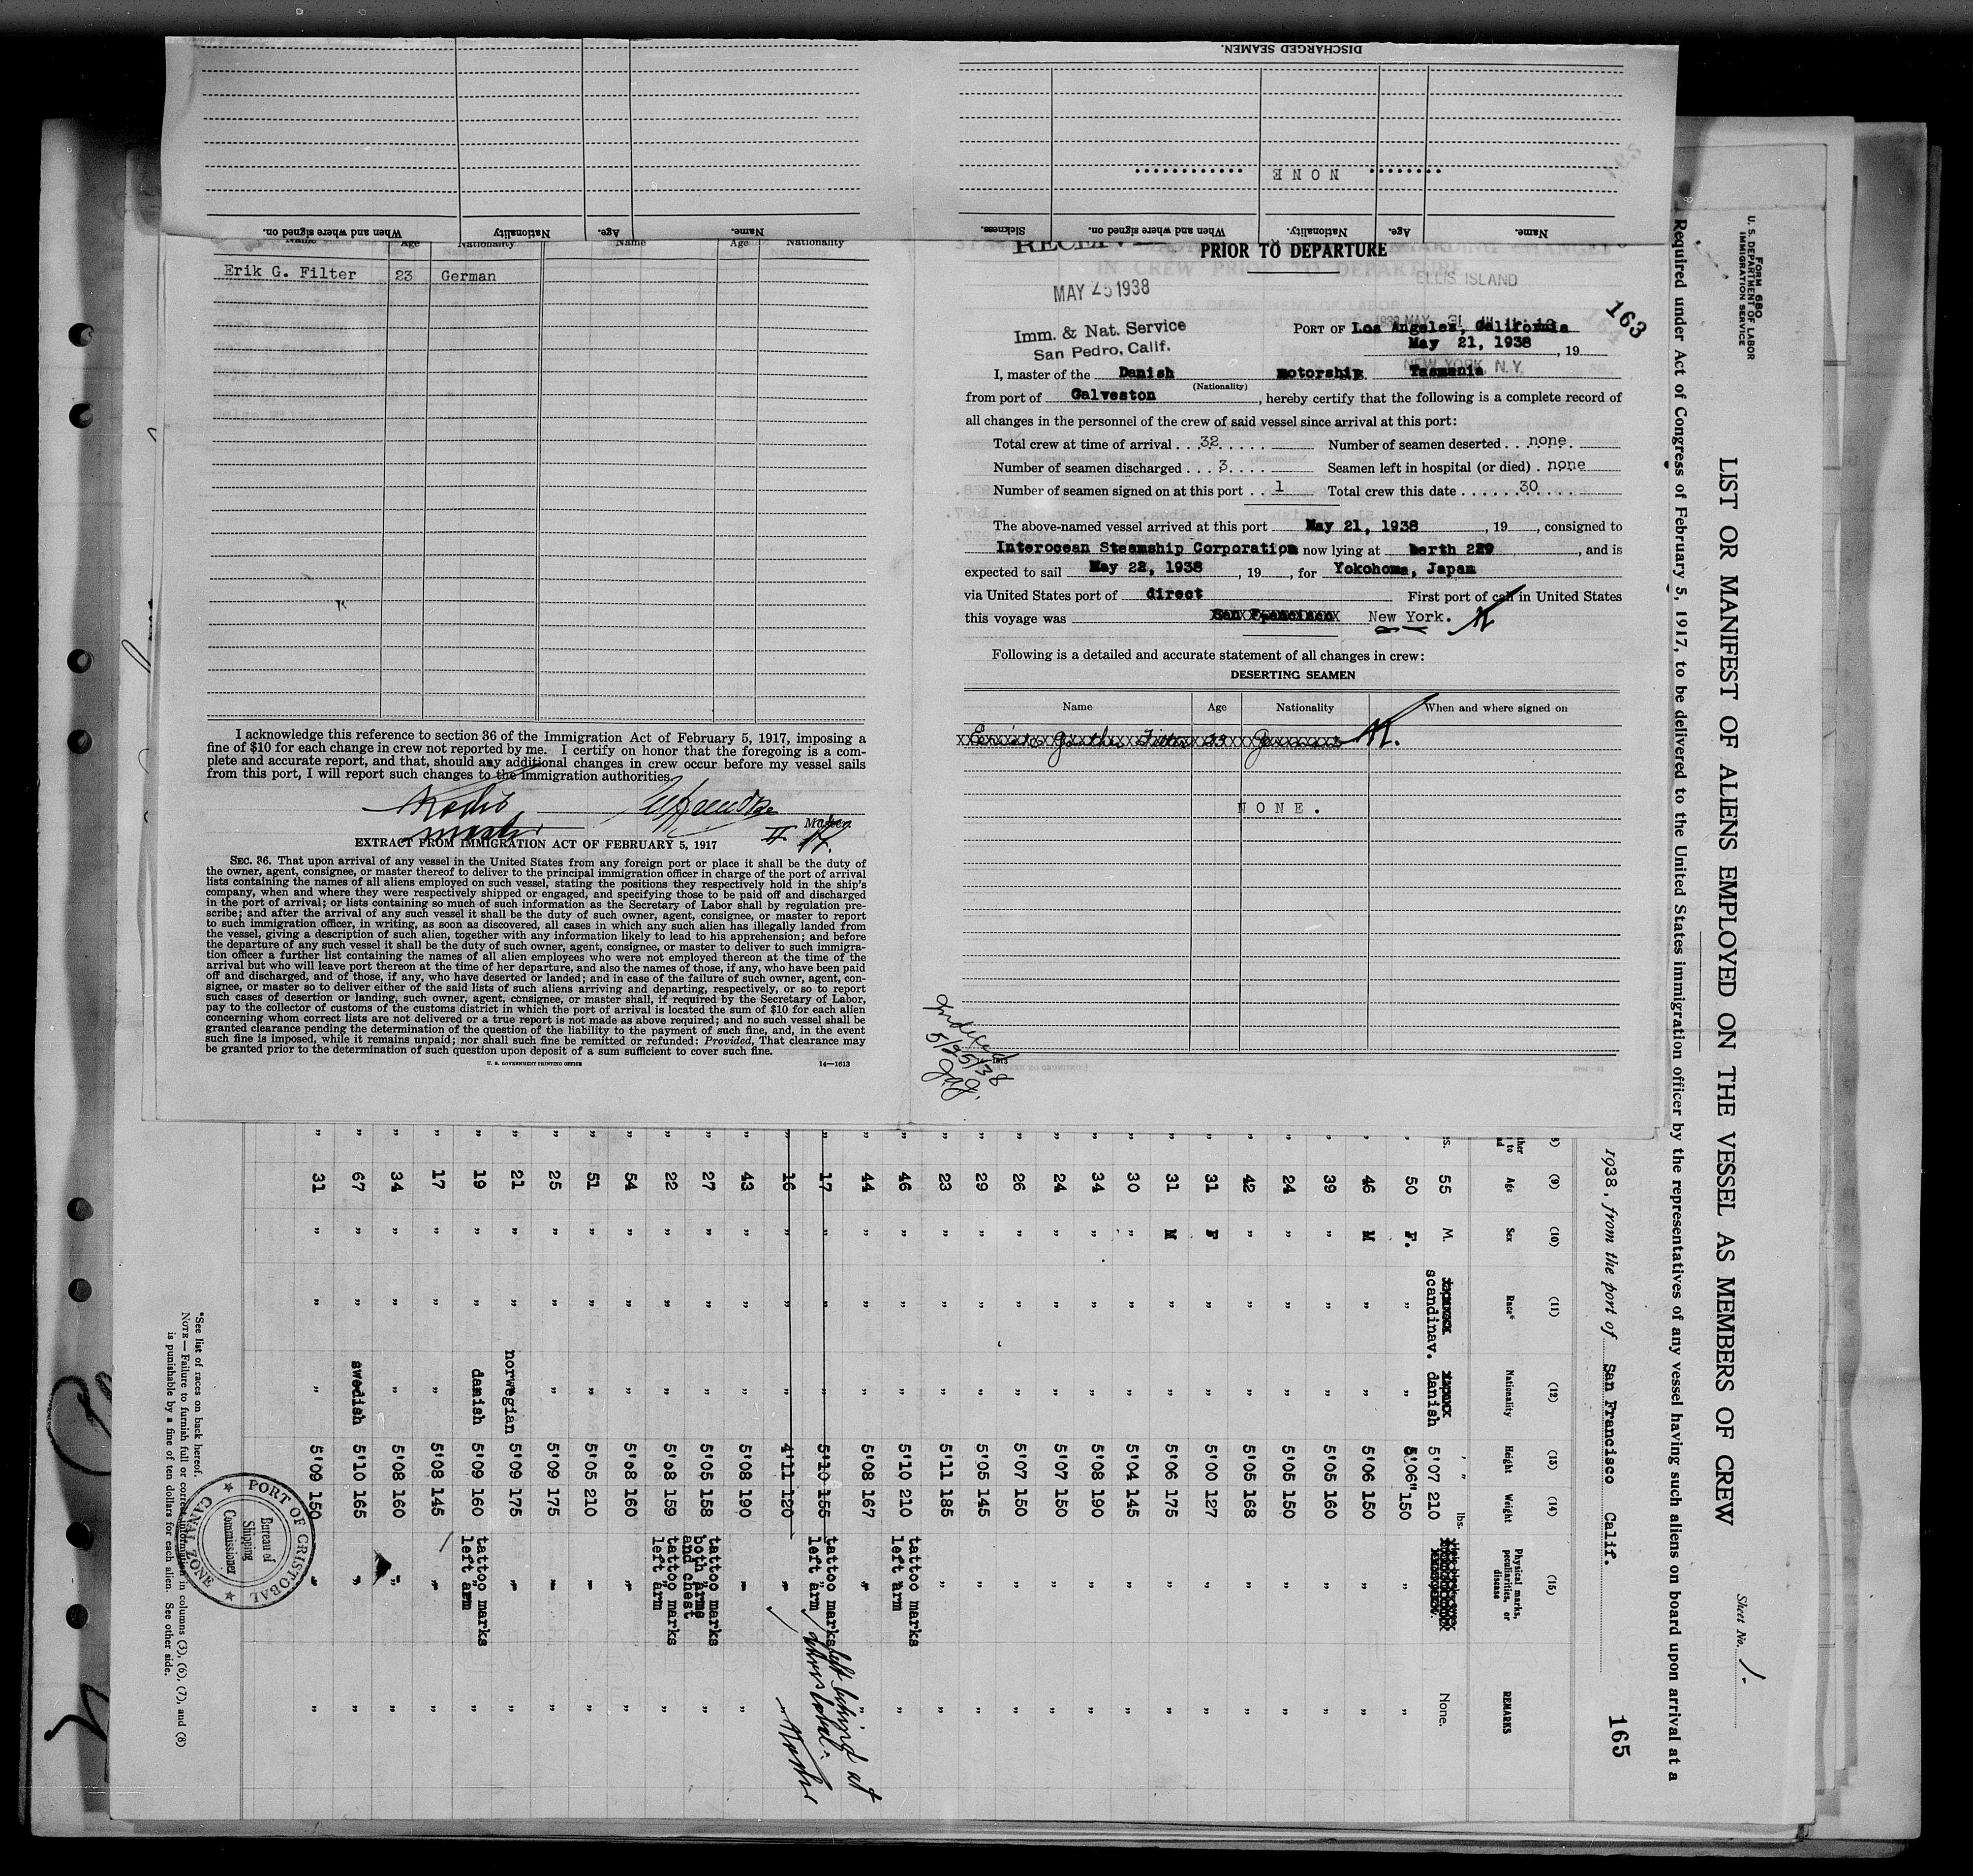 DISCHARGED SEAMEN.
NONE
Name. Age. Nationality. When and where signed on. Sickness.
Name. Age. Nationality When and where signed on.
Name Age Nationality Name Age Nationality
Erik G. Filter 23 German
I acknowledge this reference to section 36 of the Immigration Act of February 5, 1917, imposing a
fine of $10 for each change in crew not reported by me. I certify on honor that the foregoing is a com-
plete and accurate report, and that, should any additional changes in crew occur before my vessel sails
from this port, I will report such changes to the immigration authorities.
Master.
EXTRACT FROM IMMIGRATION ACT OF FEBRUARY 5, 1917
SEC. 36. That upon arrival of any vessel in the United States from any foreign port or place it shall be the duty of
the owner, agent, consignee, or master thereof to deliver to the principal immigration officer in charge of the port of arrival
lists containing the names of all aliens employed on such vessel, stating the positions they respectively hold in the ship's
company, when and where they were respectively shipped or engaged, and specifying those to be paid off and discharged
in the port of arrival; or lists containing so much of such information as the Secretary of Labor shall by regulation pre-
scribe; and after the arrival of any such vessel it shall be the duty of such owner, agent, consignee, or master to report
to such immigration officer, in writing, as soon as discovered, all cases in which any such alien has illegally landed from
the vessel, giving a description of such alien, together with any information likely to lead to his apprehension; and before
the departure of any such vessel it shall be the duty of such owner, agent, consignee, or master to deliver to such immigra-
tion officer a further list containing the names of all alien employees who were not employed thereon at the time of the
arrival but who will leave port thereon at the time of her departure, and also the names of those, if any, who have been paid
off and discharged, and of those, if any, who have deserted or landed; and in case of the failure of such owner, agent, con-
signee, or master so to deliver either of the said lists of such aliens arriving and departing, respectively, or so to report
such cases of desertion or landing, such owner, agent, consignee, or master shall, if required by the Secretary of Labor,
pay to the collector of customs of the customs district in which the port of arrival is located the sum of $10 for each alien
concerning whom correct lists are not delivered or a true report is not made as above required; and no such vessel shall be
granted clearance pending the determination of the question of the liability to the payment of such fine, and, in the event
such fine is imposed, while it remains unpaid; nor shall such fine be remitted or refunded: Provided, That clearance may
be granted prior to the determination of such question upon deposit of a sum sufficient to cover such fine.
U. S. GOVERNMENT PRINTING OFFICE 14—1613
PRIOR TO DEPARTURE
MAY 25 1938
ELLIS ISLAND
163
Imm. & Nat. Service
San Pedro, Calif.
NEW YORK, N.Y.
PORT OF Los Angeles, California
May 21, 1938, 19
I, master of the Danish motorship Tasmania
(Nationality)
from port of Galveston, hereby certify that the following is a complete record of
all changes in the personnel of the crew of said vessel since arrival at this port:
Total crew at time of arrival 32 Number of seamen deserted none
Number of seamen discharged 3 Seamen left in hospital (or died) none
Number of seamen signed on at this port 1 Total crew this date 30
The above-named vessel arrived at this port May 21, 1938, 19, consigned to
Interocean Steamship Corporation now lying at berth 229, and is
expected to sail May 22, 1938, 19, for Yokohoma, Japan
via United States port of direct First port of call in United States
this voyage was San Francisco New York.
Following is a detailed and accurate statement of all changes in crew:
DESERTING SEAMEN
Name Age Nationality When and where signed on
NONE.
Indexed
5/25/38
FORM 680
U. S. DEPARTMENT OF LABOR
IMMIGRATION SERVICE
LIST OR MANIFEST OF ALIENS EMPLOYED ON THE VESSEL AS MEMBERS OF CREW
Sheet No. 1
Required under Act of Congress of February 5, 1917, to be delivered to the United States immigration officer by the representatives of any vessel having such aliens on board upon arrival at a
1938, from the port of San Francisco Calif. 165
(9) (10) (11) (12) (13) (14) (15)
Age Sex Race* Nationality Height Weight Physical marks, peculiarities, or disease REMARKS
lbs.
55 M. scandinav. danish 5'07 210 None.
50 F. " " 5'06" 150 " "
46 M " " 5'06 150 " "
39 " " " 5'05 160 " "
24 " " " 5'05 150 " "
42 " " " 5'05 168 " "
31 F " " 5'00 127 " "
31 M " " 5'06 175 " "
30 " " " 5'04 145 " "
34 " " " 5'08 190 " "
24 " " " 5'07 150 " "
26 " " " 5'07 150 " "
29 " " " 5'05 145 " "
23 " " " 5'11 185 " "
46 " " " 5'10 210 tattoo marks left arm "
44 " " " 5'08 167 " "
17 " " " 5'10 155 tattoo marks left arm left behind at
16 " " " 4'11 120 "
43 " " " 5'08 190 " "
27 " " " 5'05 158 tattoo marks both arms and chest "
22 " " " 5'08 159 tattoo marks left arm "
54 " " " 5'08 160 " "
51 " " " 5'05 210 " "
25 " " " 5'09 175 " "
21 " " norwegian 5'09 175 " "
19 " " danish 5'09 160 tattoo marks left arm "
17 " " " 5'08 145 " "
34 " " " 5'08 160 " "
67 " " swedish 5'10 165 " "
31 " " " 5'09 150 " "
*See list of races on back hereof.
NOTE—Failure to furnish full or correct information in columns (3), (6), (7), and (8)
is punishable by a fine of ten dollars for each alien. See other side.
PORT OF CRISTOBAL
CANAL ZONE
Bureau of
Shipping
Commissioner